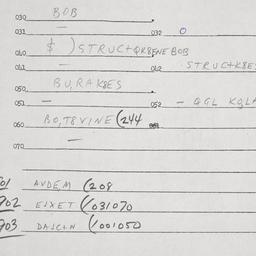 030 BOB
031 — 032 0
040 $ ) STRUCTQK8NE BOB
041 — 042 STRUCTK8ES
050 BU, RAK8ES
051 — 052 — QGL KQLA
060 BO, T8VINE (244
070 —
901 AVDEM (208
902 EIXET (/031070
903 DAJCIN (/001050